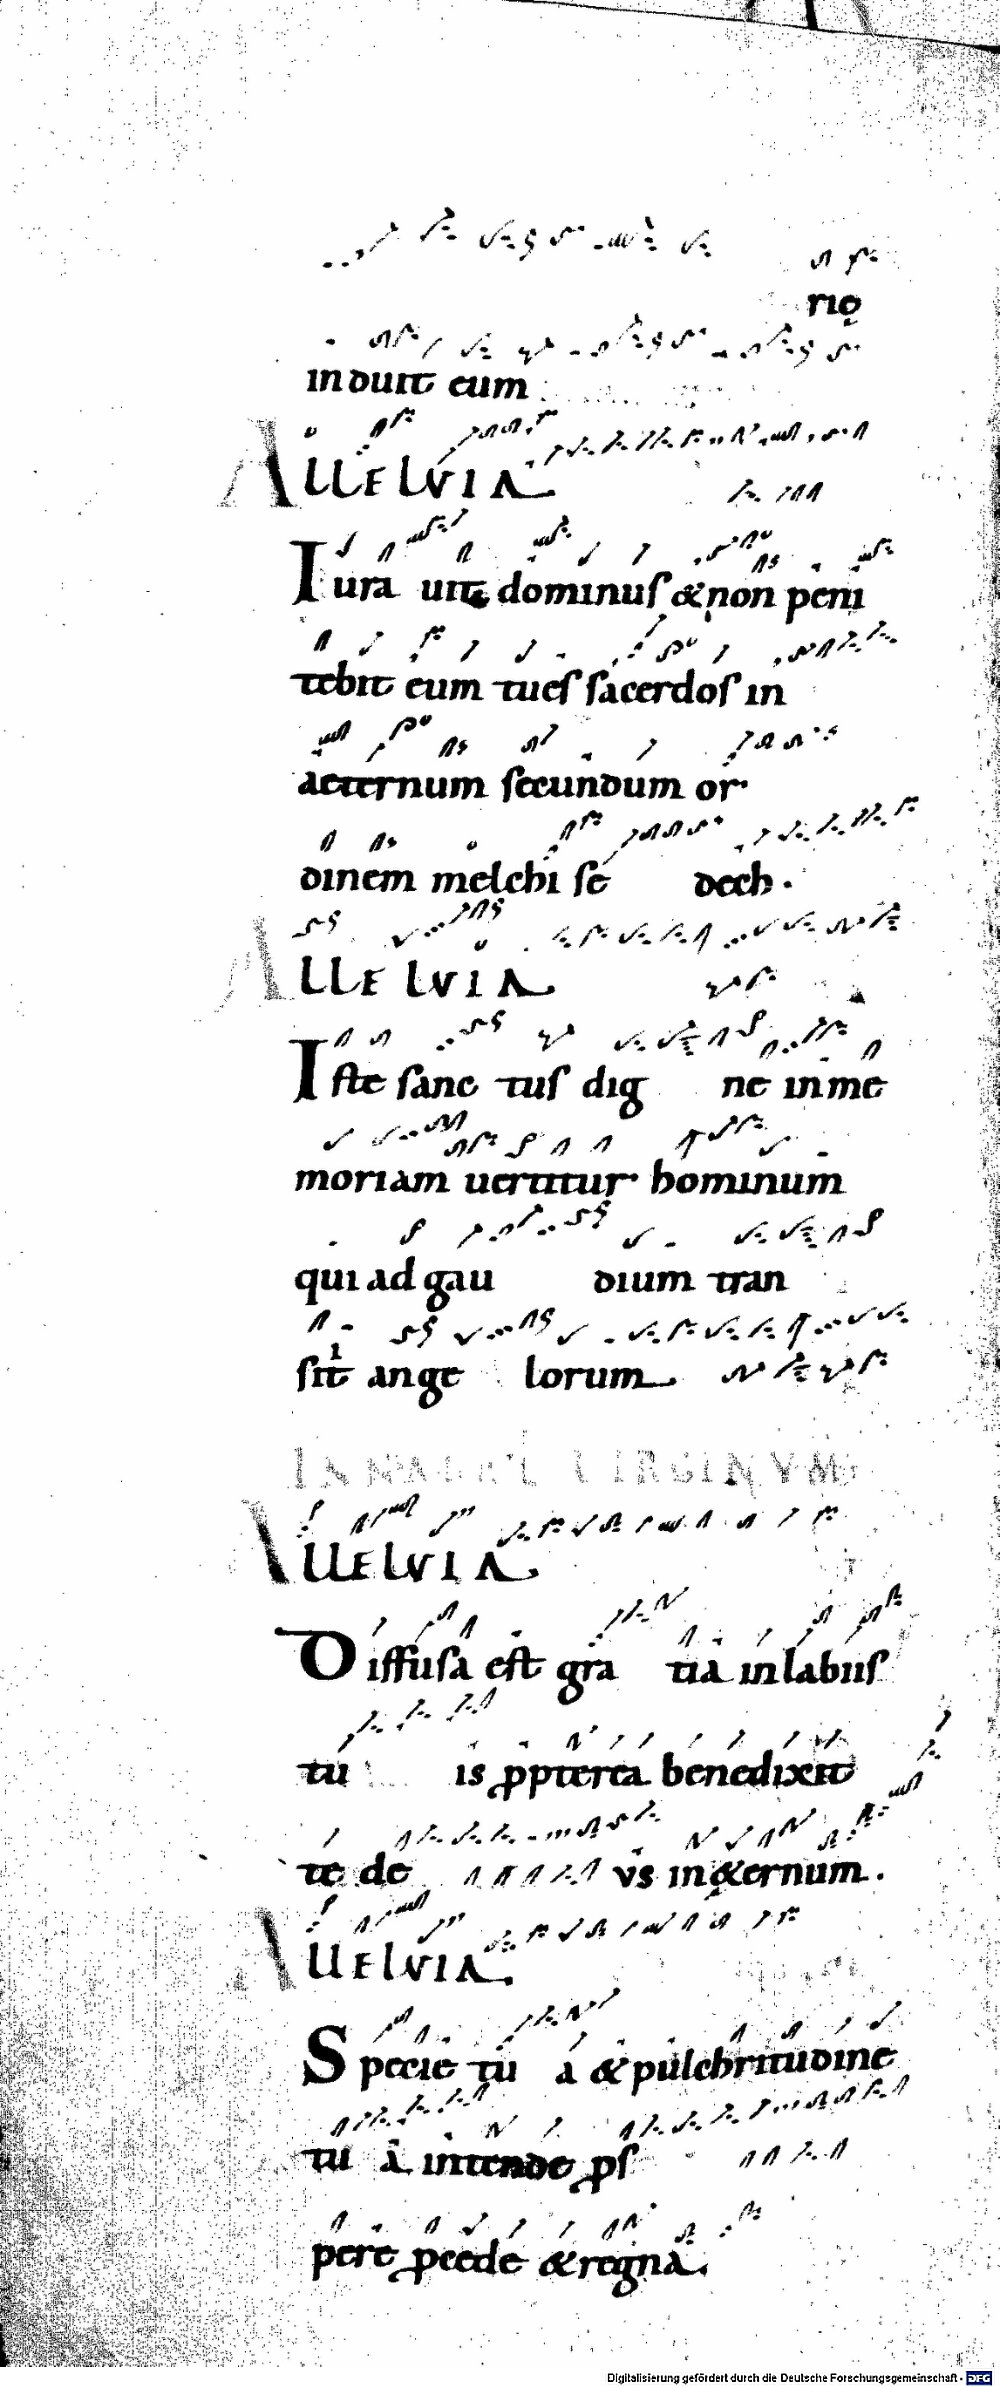 rię
induit eum
ALLELVIA
Iura uit dominuſ & non peni
tebit eum tu eſ ſacerdoſ in
aeternum ſecundum or
dinem melchi ſe dech.
ALLELVIA
Iſte ſanc tuſ dig ne in me
moriam uertitur hominum
qui ad gau dium tran
ſit ange lorum
IN NATAL VIRGINVM
ALLELVIA
Diffuſa eſt gra tia in labiiſ
tu is ꝓpterea benedixit
te de vs in &ernum.
ALLELVIA
Specie tu a & pulchritudine
tu a intende ꝓſ
pere ꝓcede & regna.
Digitalisierung gefördert durch die Deutsche Forschungsgemeinschaft - DFG